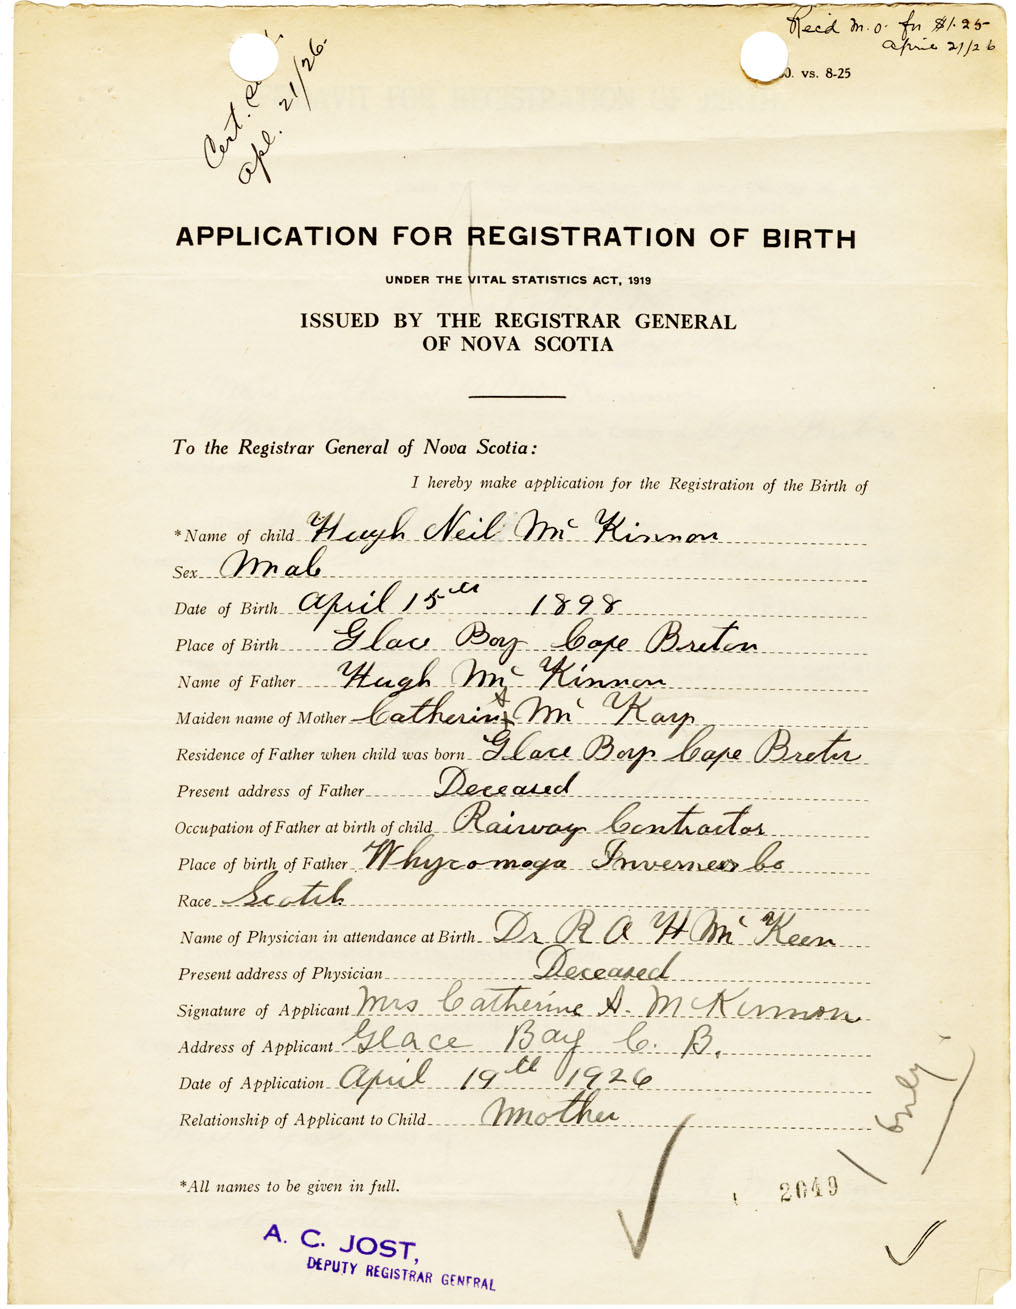 Rec'd M.O. for $1.25
April 21/26
0. vs. 8-25
Cert.
Apl. 21/26.
APPLICATION FOR REGISTRATION OF BIRTH
UNDER THE VITAL STATISTICS ACT, 1919
ISSUED BY THE REGISTRAR GENERAL
OF NOVA SCOTIA
To the Registrar General of Nova Scotia:
I hereby make application for the Registration of the Birth of
*Name of child Hugh Neil Mc Kinnon
Sex Male
Date of Birth April 15th 1898
Place of Birth Glace Bay Cape Breton
Name of Father Hugh Mc Kinnon
Maiden name of Mother Catherine A Mc Kay
Residence of Father when child was born Glace Bay Cape Breton
Present address of Father Deceased
Occupation of Father at birth of child Railway Contractor
Place of birth of Father Whycomoga Inverness Co
Race Scotch
Name of Physician in attendance at Birth Dr R A H Mc Keen
Present address of Physician Deceased
Signature of Applicant Mrs Catherine A. McKinnon
Address of Applicant Glace Bay C. B.
Date of Application April 19th 1926
Relationship of Applicant to Child Mother
1 only.
*All names to be given in full.
2049
A. C. JOST,
DEPUTY REGISTRAR GENERAL